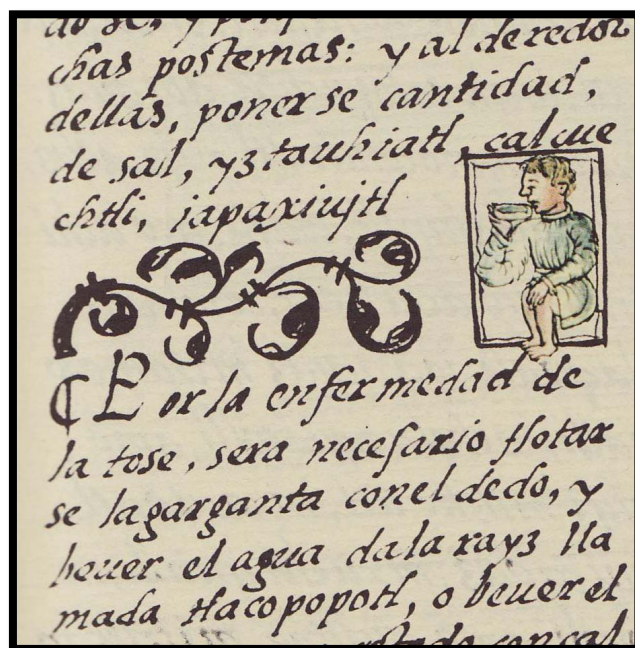 chas postemas: y al deredor
dellas, poner se cantidad,
de sal, yztauhiatl, calcue
chtli, iapaxiujtl
Por la enfermedad de
la tose, sera necesario flotar
se la garganta con el dedo, y
beuer el agua dala rayz lla
mada tlacopopotl, o beuer el
con cal